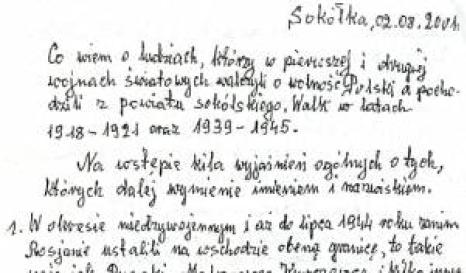 Sokółka, 02.08.2001.
Co wiem o ludziach, którzy w pierwszej i drugiej
wojnach światowych walczyli o wolność Polski a pocho-
dzili z powiatu sokólskiego. Walk w latach
1918-1921 oraz 1939-1945.
Na wstępie kila wyjaśnień ogólnych o tych,
których dalej wymienie imieniem i nazwiskiem.
1. W okresie międzywojennym i aż do lipca 1944 roku zanim
Rosjanie ustalili na wschodzie obecną granicę, to takie